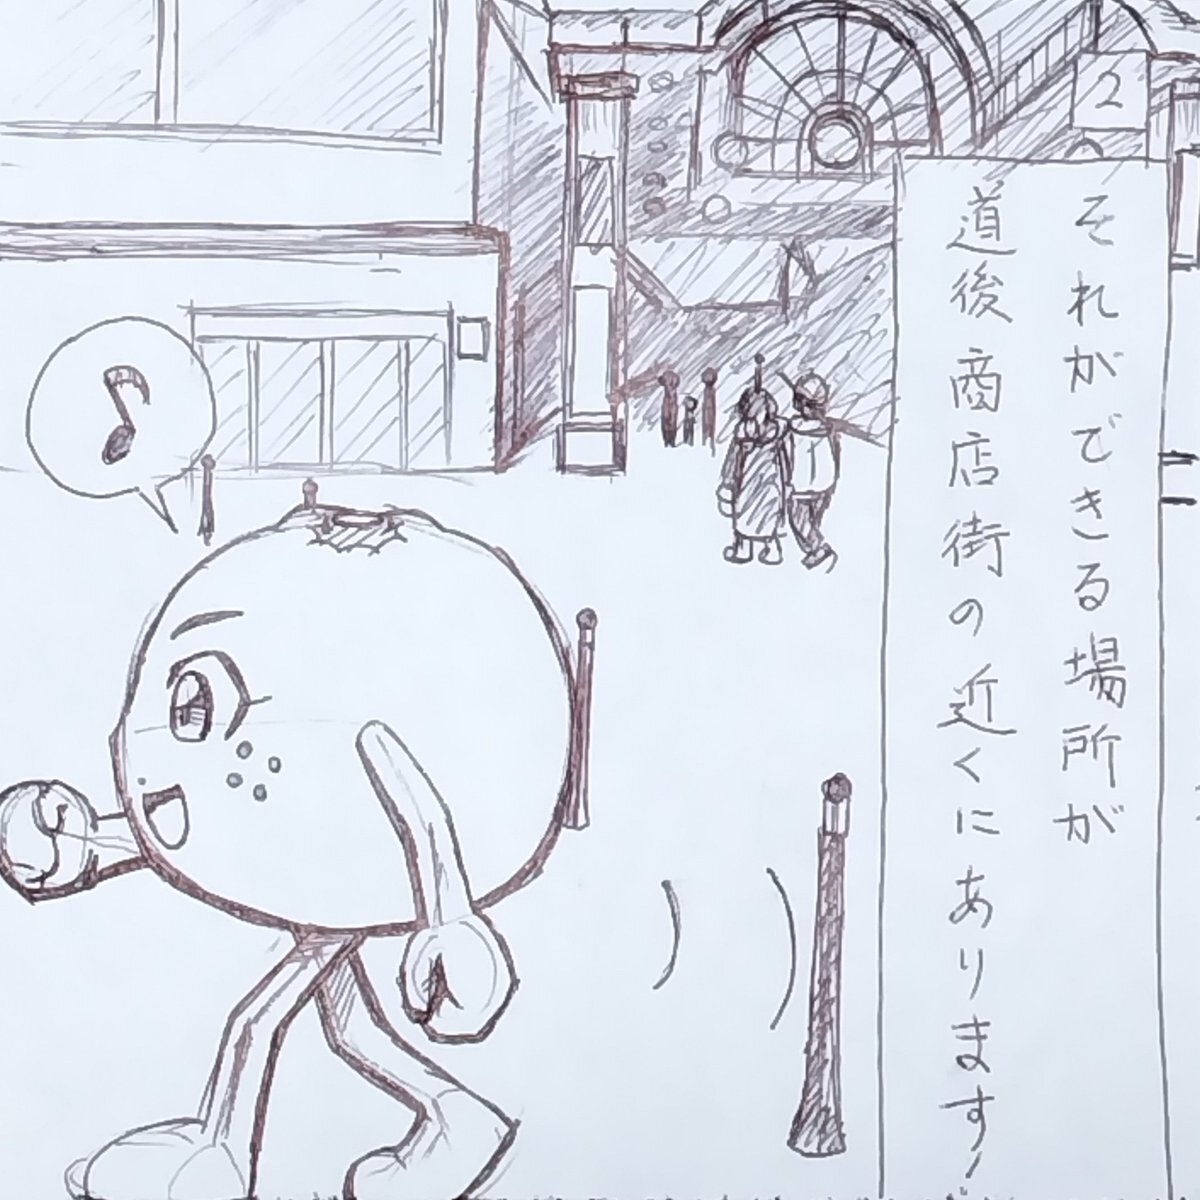 それができる場所が
道後商店街の近くにあります!
2